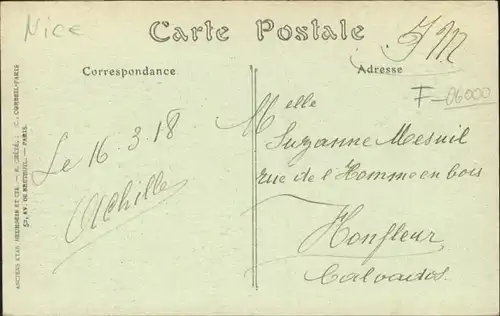 Nice
Carte Postale
FM
Correspondance
Adresse
F-06000
Melle
Suzanne Mesnil
rue de l'Homme en bois
Honfleur
Calvados
Le 16-3-18
Achille
ANCIENS ETAB. NEURDEIN ET CIE. — E. CRÉTÉ, C., CORBEIL-PARIS
52, AV. DE BRETEUIL. — PARIS.